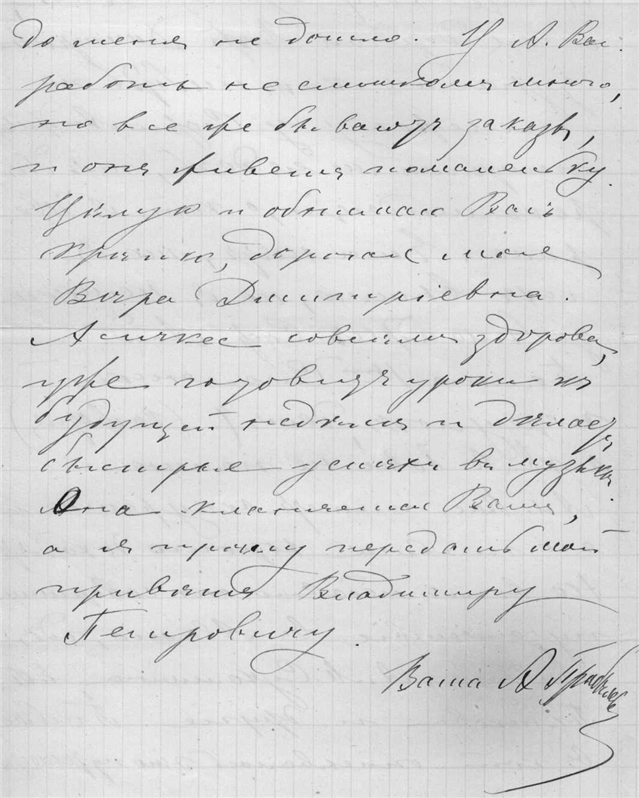 до меня не дошло. У А. Вас.
работы не слишкомъ много,
но все же бываютъ заказы,
и онъ живетъ помаленьку.
Цѣлую и обнимаю Васъ
крѣпко, дорогая моя
Вѣра Дмитріевна.
совсѣмъ здорова,
уже готовитъ уроки къ
будущей недѣлѣ и дѣлаетъ
быстрые успѣхи въ музыкѣ.
Она кланяется Вамъ,
а я прошу передать мой
привѣтъ Владимиру
Петровичу.
Ваша А